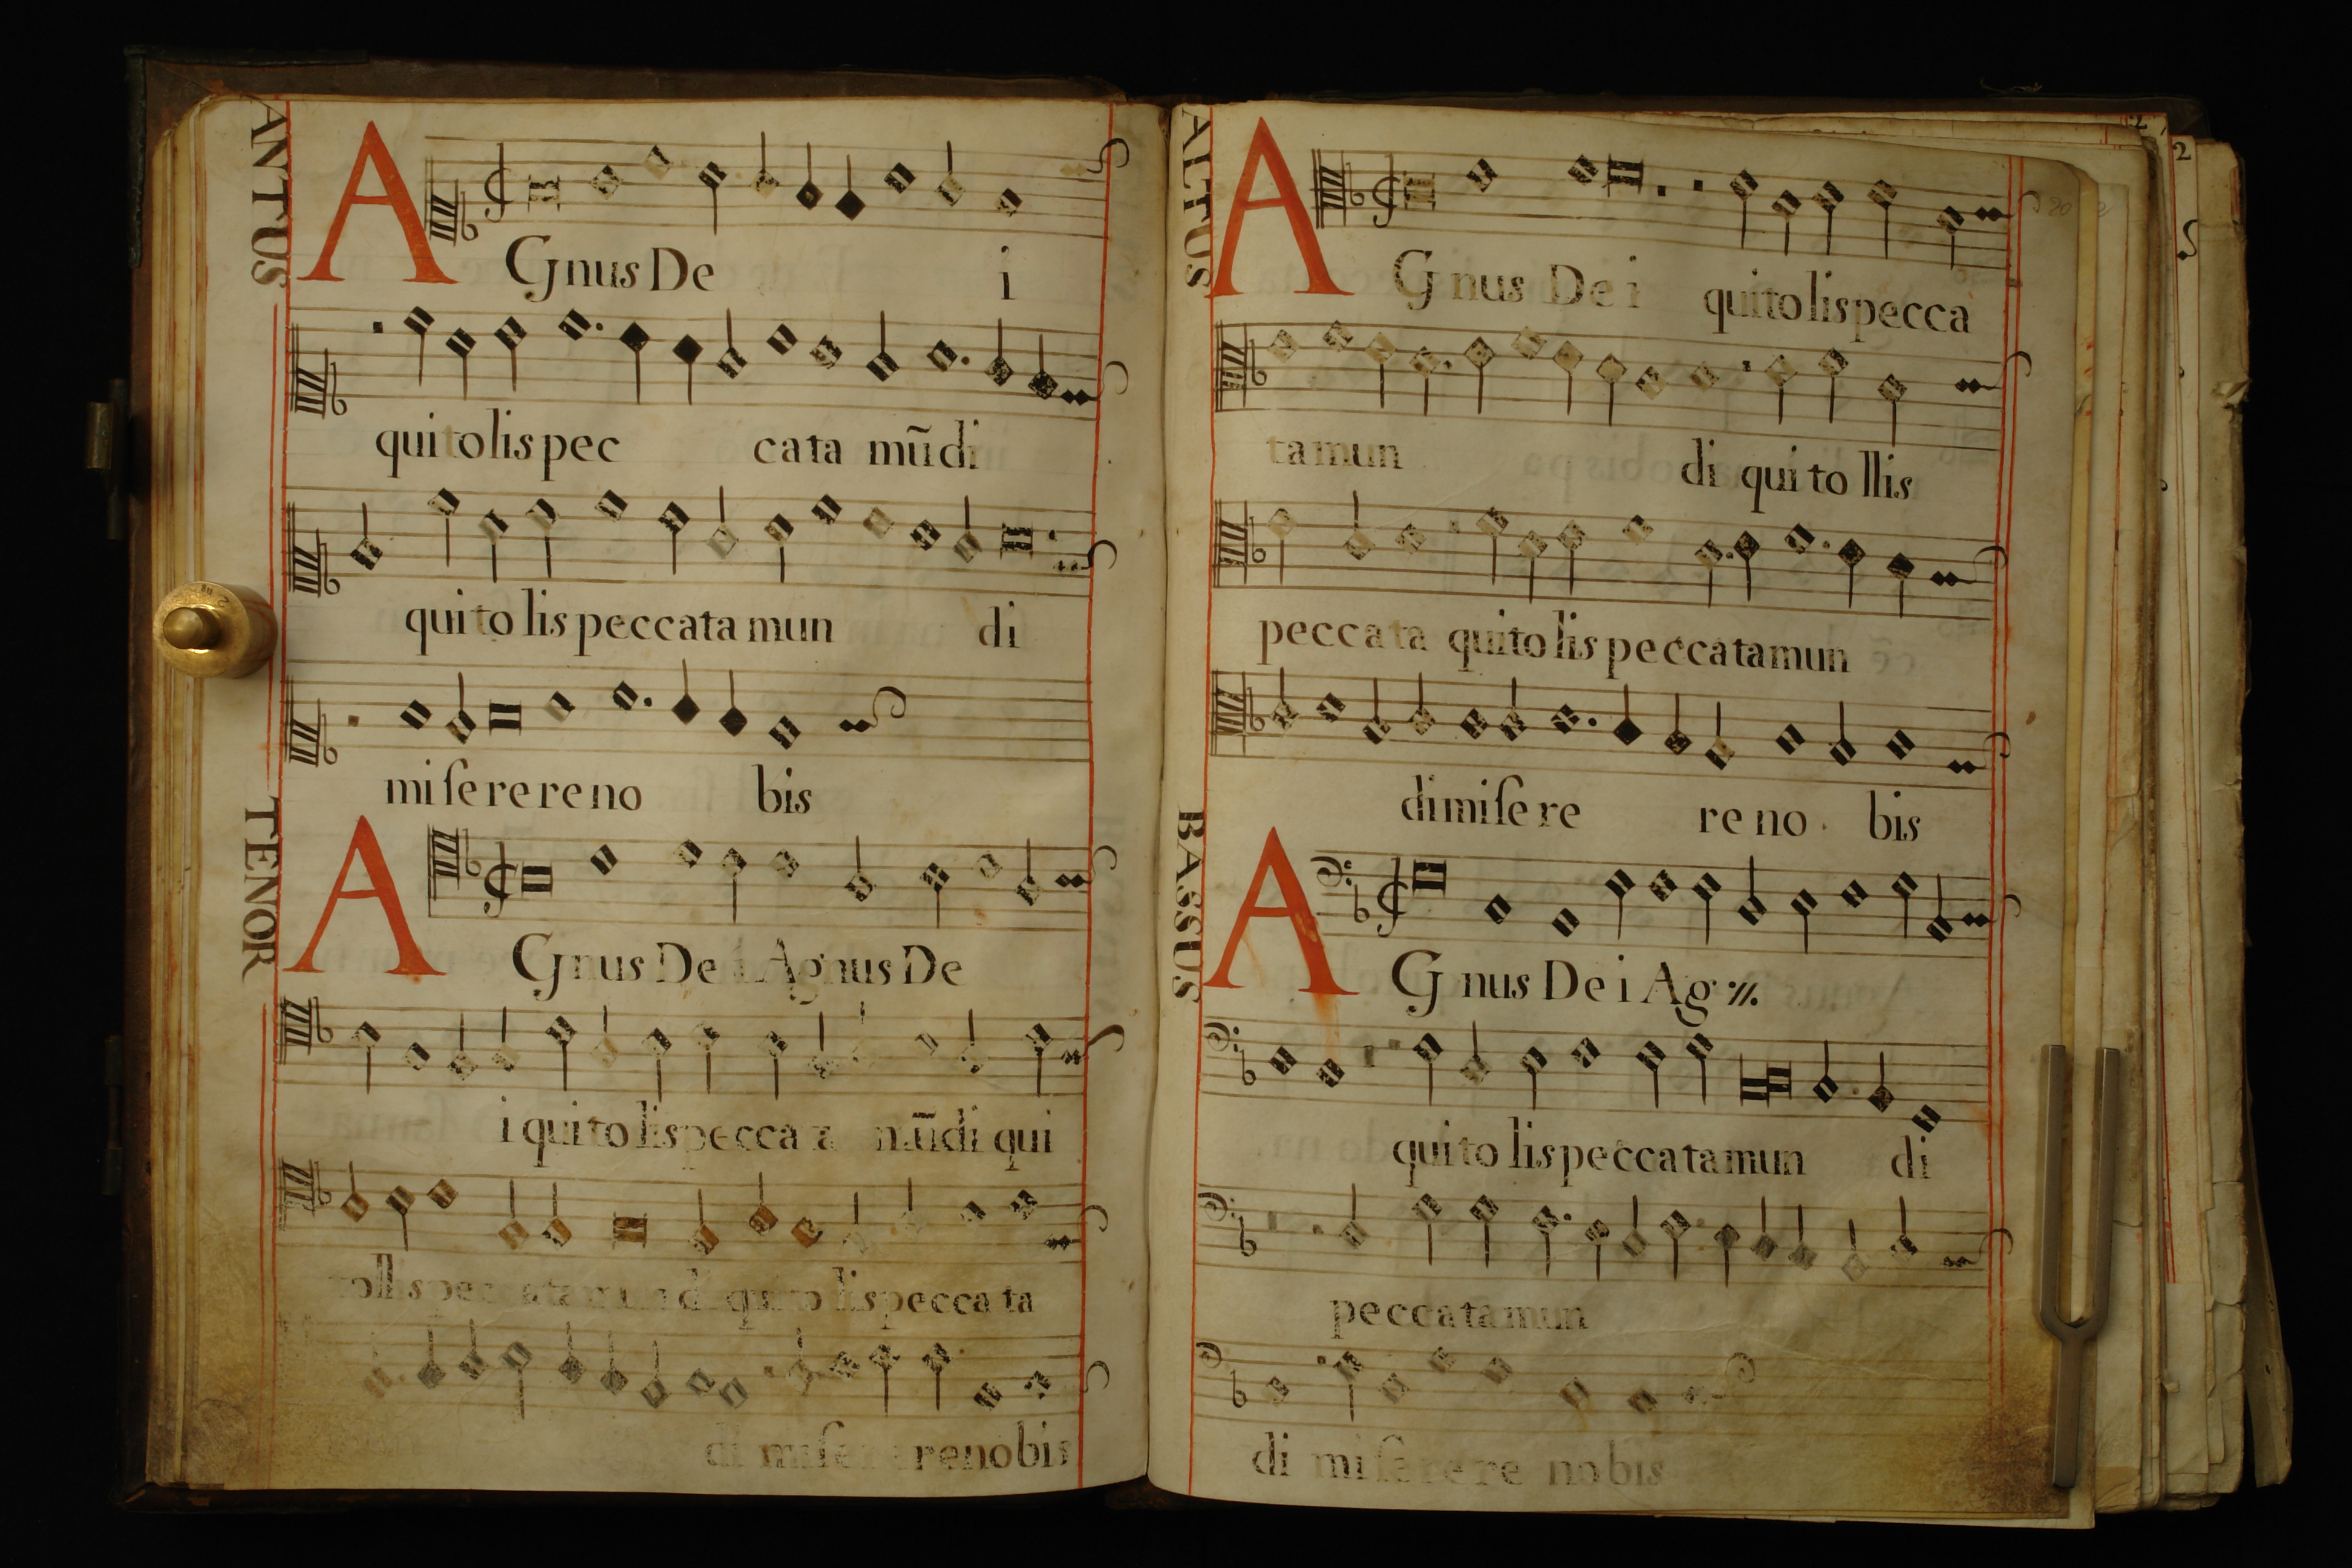 ANTUS
AGnus De i
quitolis pec cata mũdi
quito lis peccata mun di
miſerere no bis
TENOR
AGnus De i Agnus De
i quito lis pecca a mũdi qui
quito lis pecca ta
di renobis
ALTUS
AGnus Dei quitolis pecca
ta mun di qui to llis
peccata quito lis peccatamun
di miſere re no bis
BASSUS
AGnus Dei Ag
quito lis peccatamun di
peccatamun
di miſerere nobis